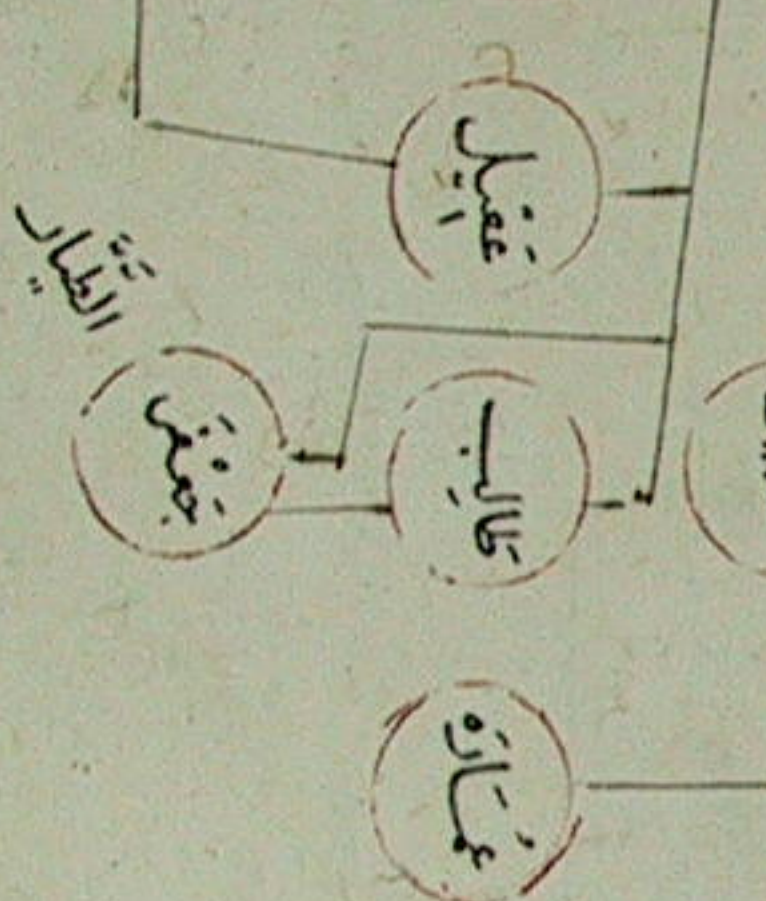 عَقِيل
الطَّيَّار
جَعْفَر
طَالِب
عُمَارَه